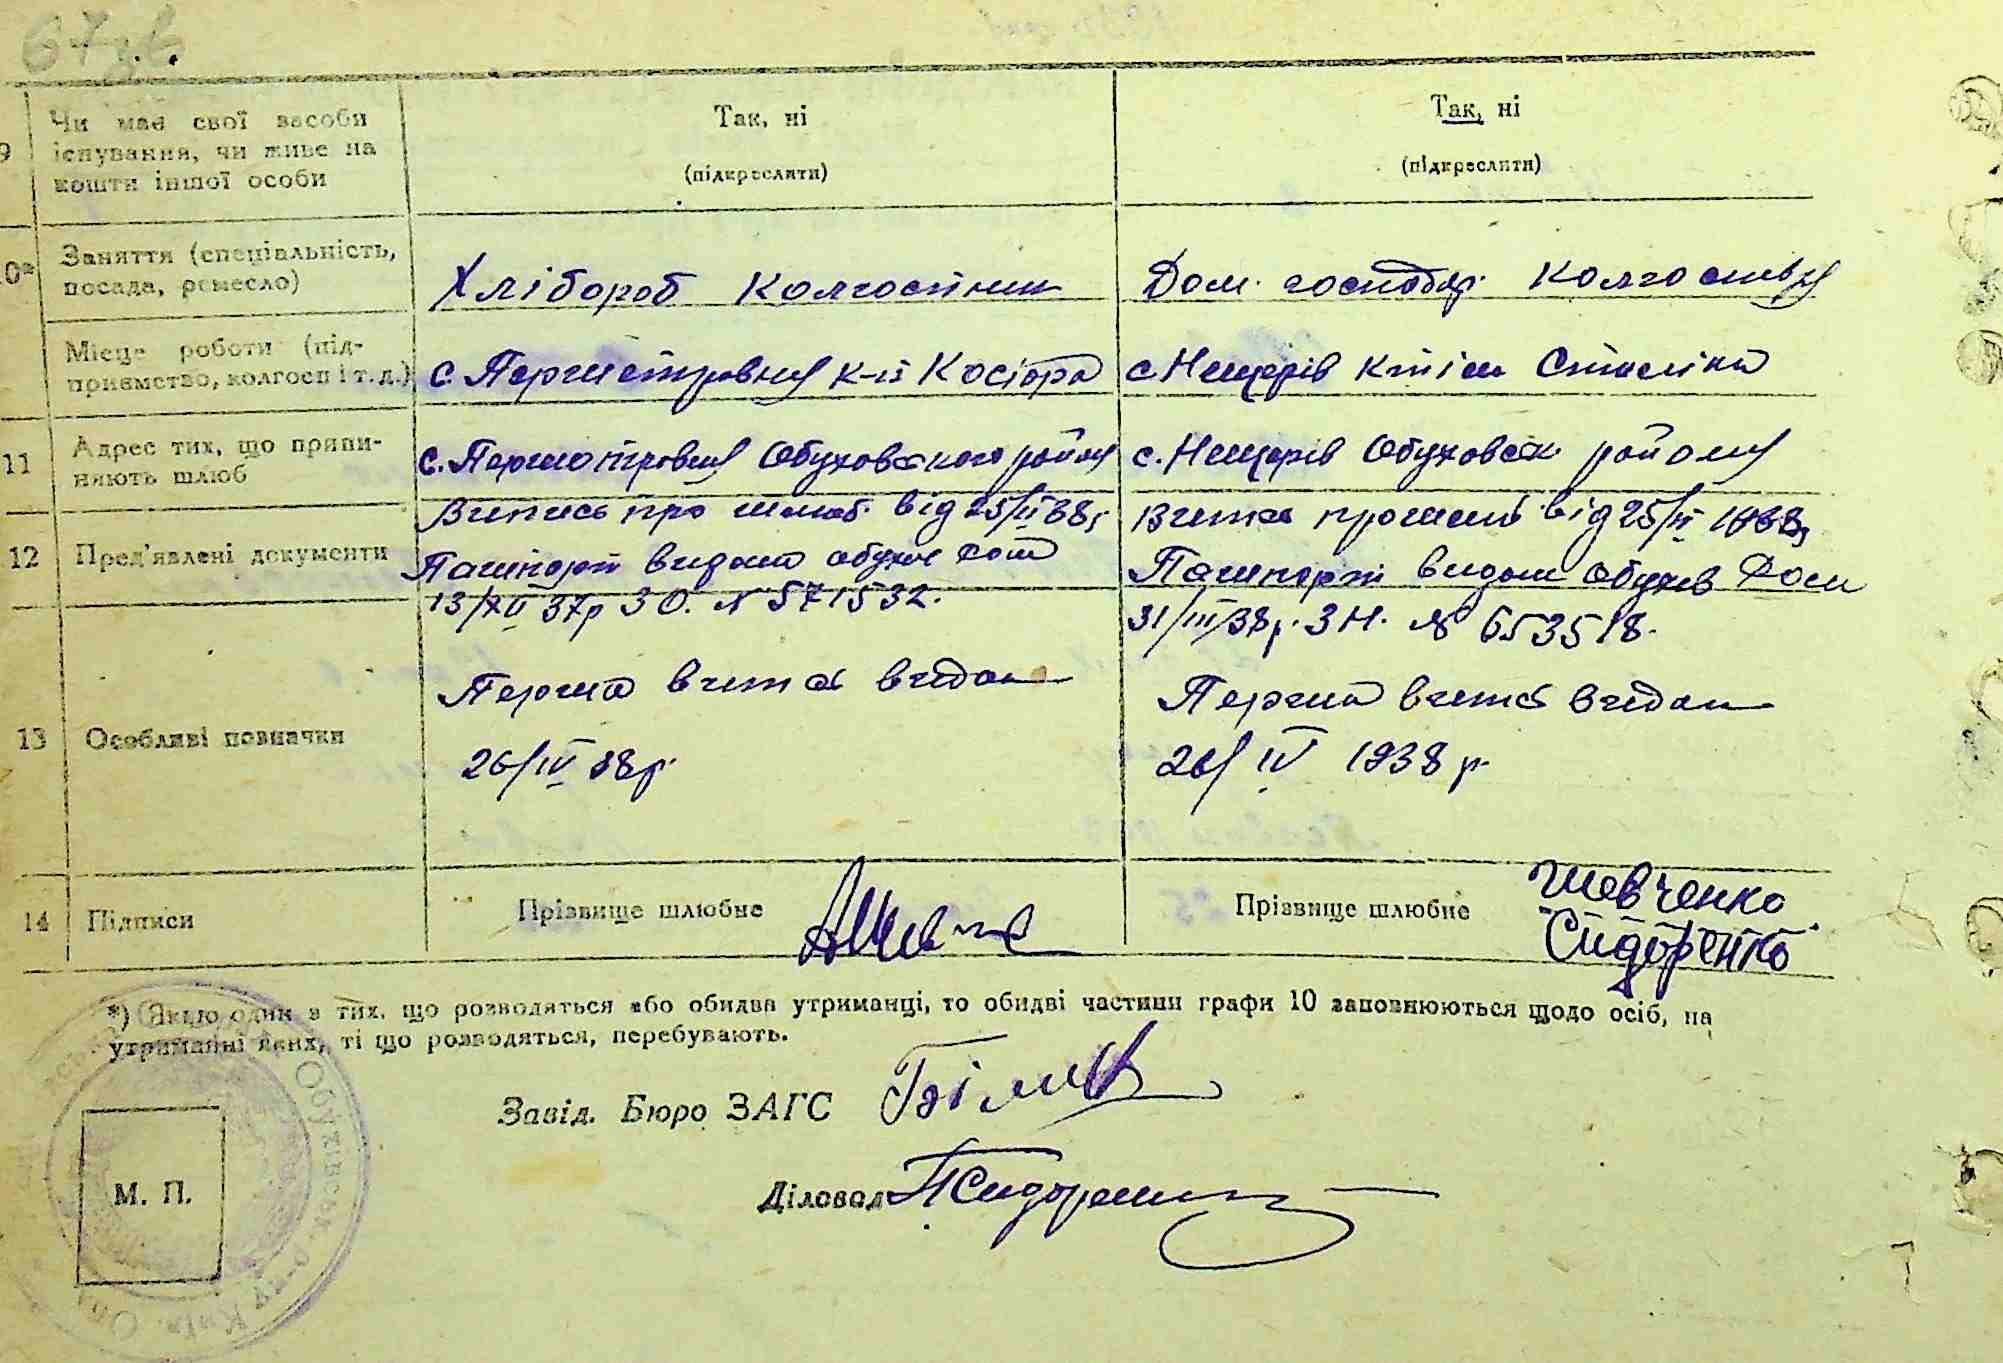 67 зв.
9 Чи має свої засоби існування, чи живе на кошти іншої особи
Так, ні
(підкреслити)
Так, ні
(підкреслити)
10* Заняття (спеціальність, посада, ремесло)
Хлібороб Колгоспник
Дом. господар. Колгоспну
Місце роботи (підприємство, колгосп і т.д.)
с. к-п Косіора
с Нещерів Сталіна
11 Адрес тих, що припиняють шлюб
с. Обуховського району
с. Нещерів Обуховськ району
12 Пред'явлені документи
Випись про шлюб. від 25/ІІ 38р
Пашпорт видан обухів
13/ХІІ 37р ЗО. № 571532.
від 25/ІІ 1938р
Пашпорт видан Обухів
31/ІІІ/38р. ЗН. № 653518.
13 Особливі позначки
Перша випись видана
26/IV 38р.
Перша випись видана
26/ IV 1938 р.
14 Підписи
Прізвище шлюбне
Прізвище шлюбне Шевченко
Сидоренко
*) Якщо один з тих, що розводяться або обидва утриманці, то обидві частини графи 10 заповнюються щодо осіб, на
утриманні яких, ті що розводяться, перебувають.
Завід. Бюро ЗАГС
Діловод
М. П.